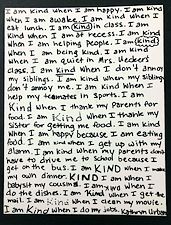 I am kind when I am happy. I am kind
when I am awake. I am kind when I
eat lunch. I am kind in class. I am
kind when I am at recess. I am kind
when I am helping people. I am kind
when I am being kind. I am kind
when I am quiet in Mrs. Ueckert's
class. I am kind when I don't annoy
my siblings. I am kind when my siblings
don't annoy me. I am kind when I
help my teamates in sports. I am
Kind when I thank my parents for
food. I am kind when I thank my
sister for getting me food. I am kind
when I am happy because I am eating
food. I am kind when I get up with my
alarm. I am kind when my parents don't
have to drive me to school because I
get on the bus. I am KIND when I make
my own dinner. KIND I am when I
babysit my cousins. I am kind when I
do the dishes. I am Kind when I get the
mail. I am Kind when I clean my movie.
I am Kind when I do my jobs. Kathryn Urban